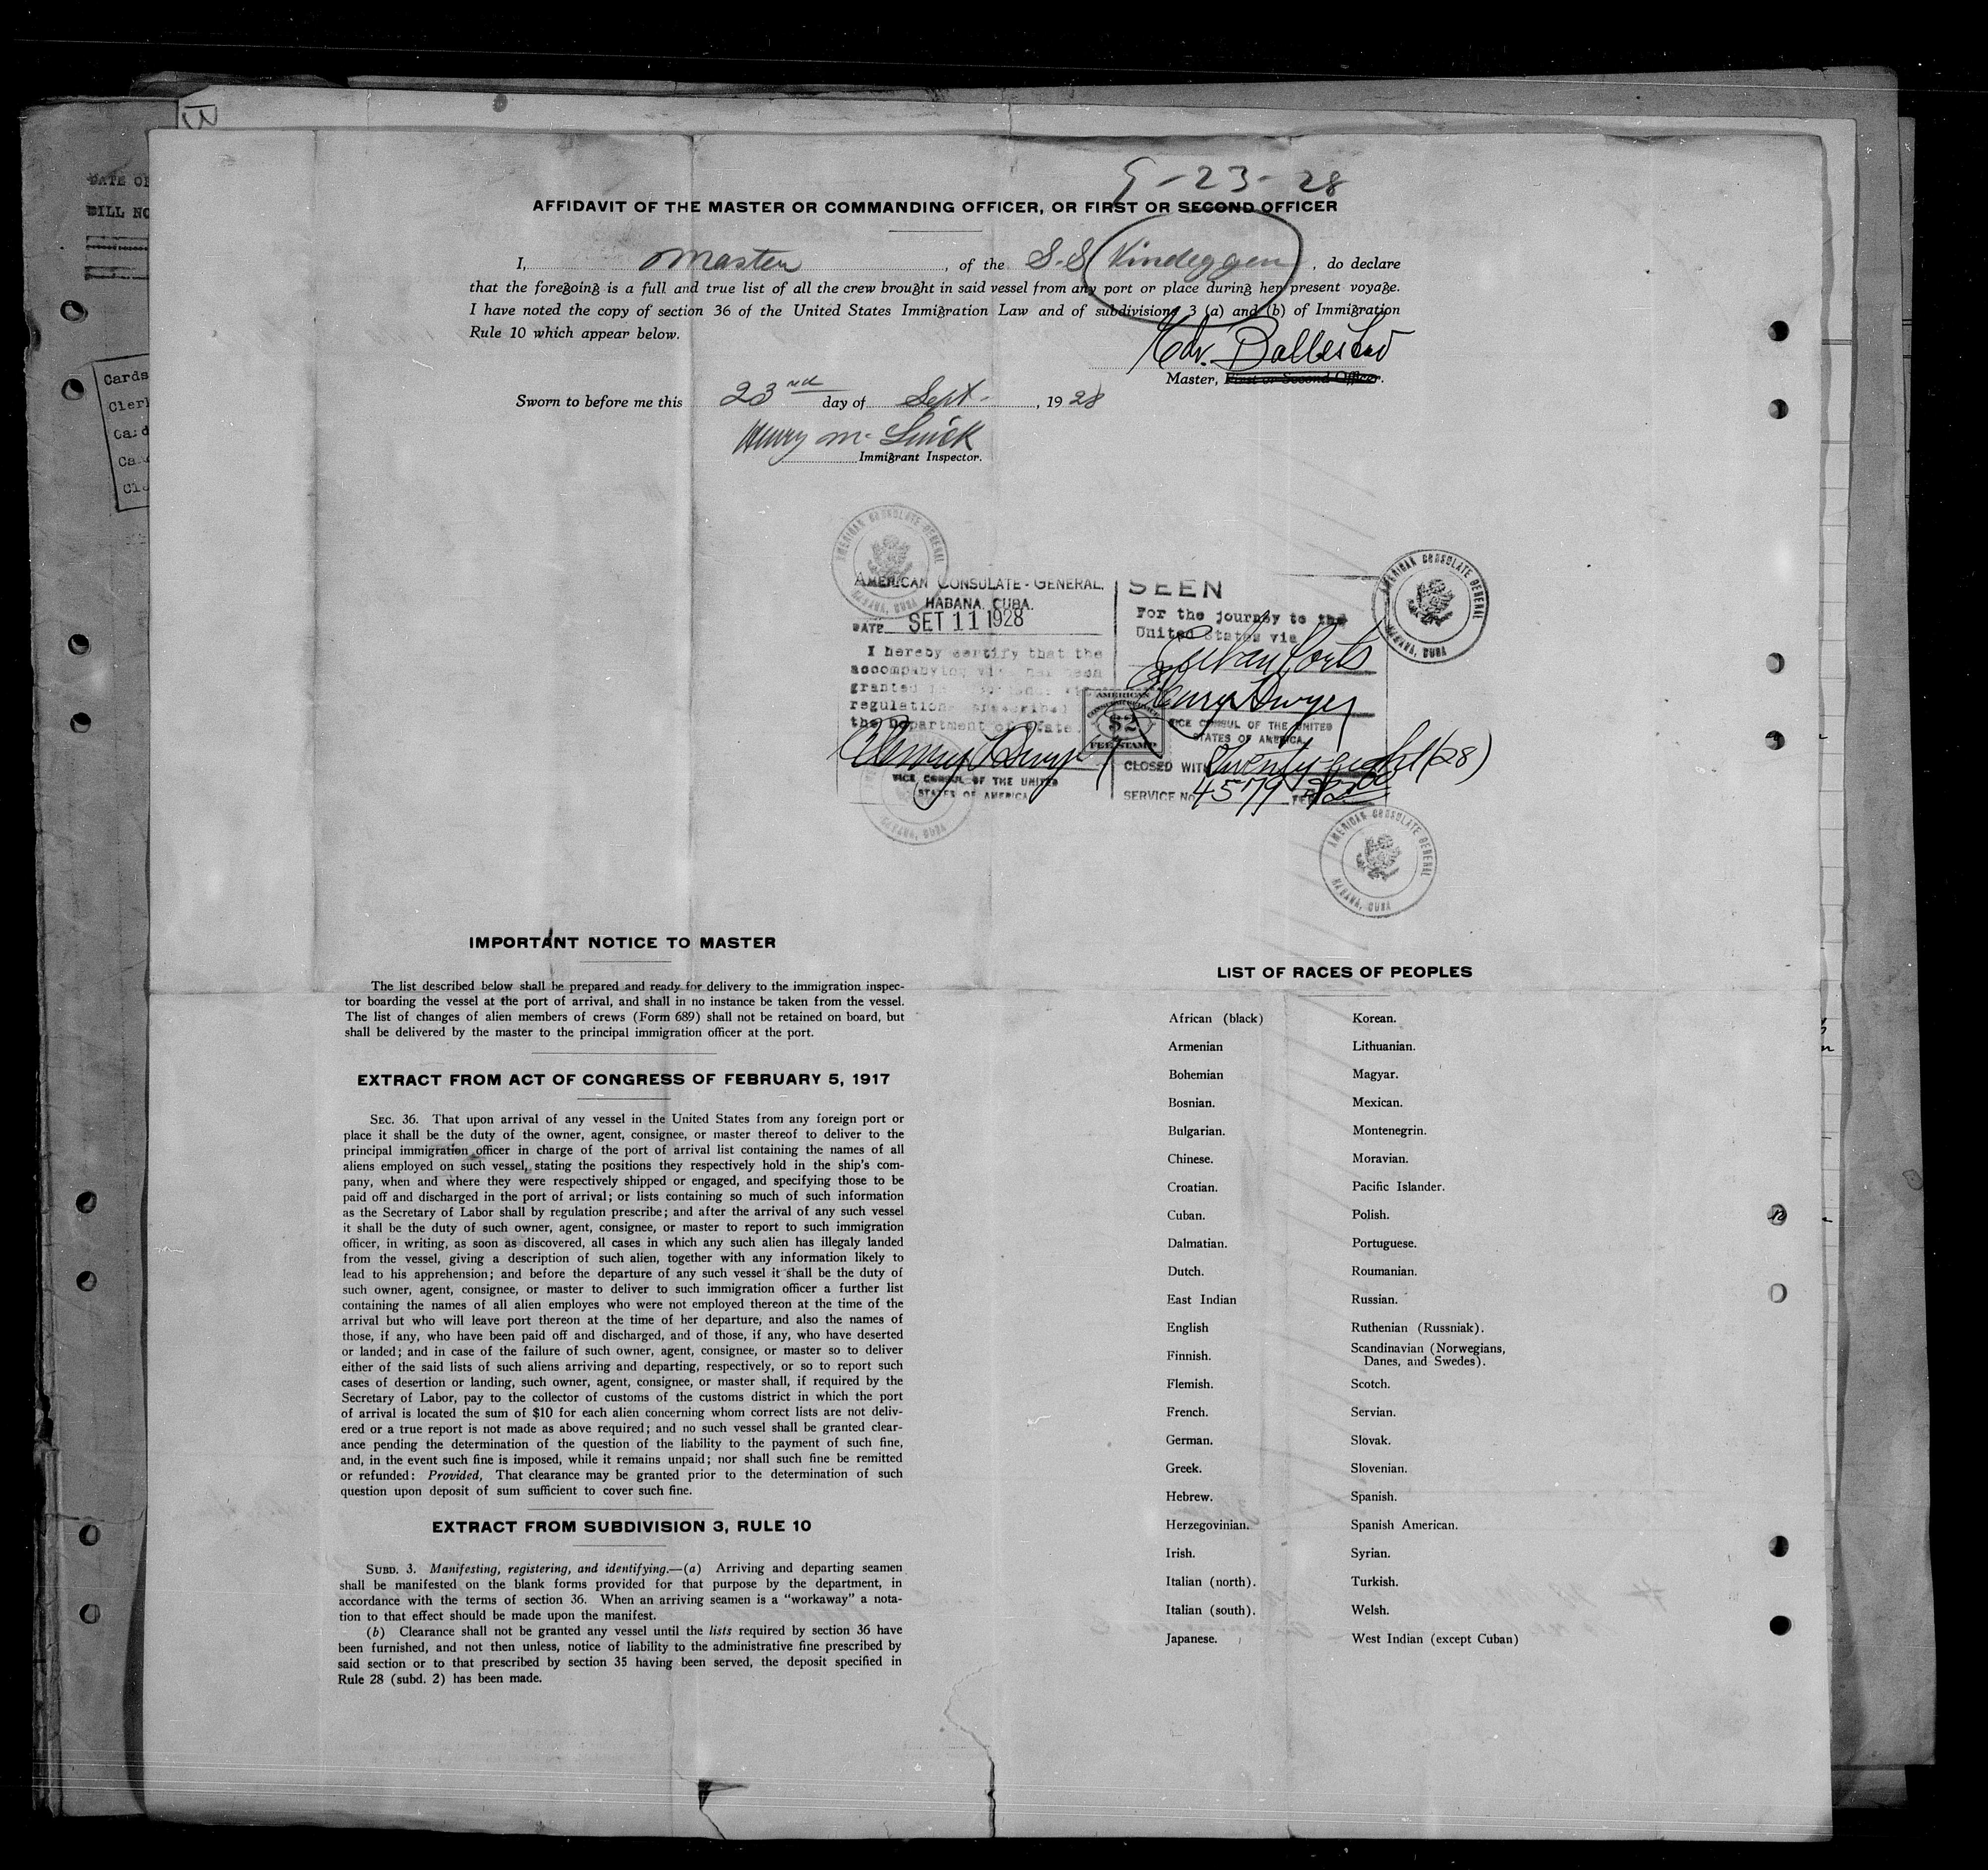 DATE OF
BILL NO
Cards
Cler
Card
9-23-28
AFFIDAVIT OF THE MASTER OR COMMANDING OFFICER, OR FIRST OR SECOND OFFICER
I, Master, of the S.S. Vindeggen, do declare
that the foregoing is a full and true list of all the crew brought in said vessel from any port or place during her present voyage.
I have noted the copy of section 36 of the United States Immigration Law and of subdivisions 3 (a) and (b) of Immigration
Rule 10 which appear below.
Master, First or Second Officer.
Sworn to before me this 23rd day of Sept., 1928
Henry M.
Immigrant Inspector.
AMERICAN CONSULATE GENERAL
HABANA, CUBA
AMERICAN CONSULATE-GENERAL.
HABANA. CUBA.
DATE SET 11 1928
I hereby certify that the
accompanying visa has been
granted
regulations prescribed
the Department of State.
VICE CONSUL OF THE UNITED
STATES OF AMERICA
HABANA, CUBA
SEEN
For the journey to the
United States via
Cuban Ports
Henry Dwyer
VICE CONSUL OF THE UNITED
STATES OF AMERICA
AMERICAN
$2
FEE STAMP
CLOSED WITH Twenty-eight (28)
SERVICE No. 4579 FEE $2.00
AMERICAN CONSULATE GENERAL
HABANA, CUBA
AMERICAN CONSULATE GENERAL
HABANA, CUBA
IMPORTANT NOTICE TO MASTER
The list described below shall be prepared and ready for delivery to the immigration inspec-
tor boarding the vessel at the port of arrival, and shall in no instance be taken from the vessel.
The list of changes of alien members of crews (Form 689) shall not be retained on board, but
shall be delivered by the master to the principal immigration officer at the port.
EXTRACT FROM ACT OF CONGRESS OF FEBRUARY 5, 1917
SEC. 36. That upon arrival of any vessel in the United States from any foreign port or
place it shall be the duty of the owner, agent, consignee, or master thereof to deliver to the
principal immigration officer in charge of the port of arrival list containing the names of all
aliens employed on such vessel, stating the positions they respectively hold in the ship's com-
pany, when and where they were respectively shipped or engaged, and specifying those to be
paid off and discharged in the port of arrival; or lists containing so much of such information
as the Secretary of Labor shall by regulation prescribe; and after the arrival of any such vessel
it shall be the duty of such owner, agent, consignee, or master to report to such immigration
officer, in writing, as soon as discovered, all cases in which any such alien has illegaly landed
from the vessel, giving a description of such alien, together with any information likely to
lead to his apprehension; and before the departure of any such vessel it shall be the duty of
such owner, agent, consignee, or master to deliver to such immigration officer a further list
containing the names of all alien employes who were not employed thereon at the time of the
arrival but who will leave port thereon at the time of her departure, and also the names of
those, if any, who have been paid off and discharged, and of those, if any, who have deserted
or landed; and in case of the failure of such owner, agent, consignee, or master so to deliver
either of the said lists of such aliens arriving and departing, respectively, or so to report such
cases of desertion or landing, such owner, agent, consignee, or master shall, if required by the
Secretary of Labor, pay to the collector of customs of the customs district in which the port
of arrival is located the sum of $10 for each alien concerning whom correct lists are not deliv-
ered or a true report is not made as above required; and no such vessel shall be granted clear-
ance pending the determination of the question of the liability to the payment of such fine,
and, in the event such fine is imposed, while it remains unpaid; nor shall such fine be remitted
or refunded: Provided, That clearance may be granted prior to the determination of such
question upon deposit of sum sufficient to cover such fine.
EXTRACT FROM SUBDIVISION 3, RULE 10
SUBD. 3. Manifesting, registering, and identifying.—(a) Arriving and departing seamen
shall be manifested on the blank forms provided for that purpose by the department, in
accordance with the terms of section 36. When an arriving seamen is a "workaway" a nota-
tion to that effect should be made upon the manifest.
(b) Clearance shall not be granted any vessel until the lists required by section 36 have
been furnished, and not then unless, notice of liability to the administrative fine prescribed by
said section or to that prescribed by section 35 having been served, the deposit specified in
Rule 28 (subd. 2) has been made.
LIST OF RACES OF PEOPLES
African (black) Korean.
Armenian Lithuanian.
Bohemian Magyar.
Bosnian. Mexican.
Bulgarian. Montenegrin.
Chinese. Moravian.
Croatian. Pacific Islander.
Cuban. Polish.
Dalmatian. Portuguese.
Dutch. Roumanian.
East Indian Russian.
English Ruthenian (Russniak).
Finnish. Scandinavian (Norwegians,
Danes, and Swedes).
Flemish. Scotch.
French. Servian.
German. Slovak.
Greek. Slovenian.
Hebrew. Spanish.
Herzegovinian. Spanish American.
Irish. Syrian.
Italian (north). Turkish.
Italian (south). Welsh.
Japanese. West Indian (except Cuban)